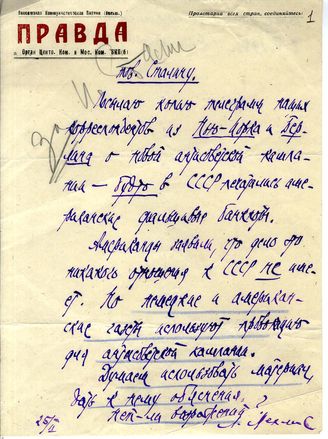 Всесоюзная Коммунистическая Партия (больш.)
Пролетарии всех стран, соединяйтесь!
1
ПРАВДА
Орган Центр. Ком. и Мос. Ком. ВКП(б)
тов. Сталину.
Посылаю копию телеграмм наших
корреспондентов из Нью-Йорка и Бер-
лина о новой антисоветской кампа-
нии — будто в СССР печатались аме-
риканские фальшивые банкноты.
Американцы заявили, что дело это
никакого отношения к СССР не име-
ет. Но немецкие и американ-
ские газеты используют провокацию
для антисоветской кампании.
Думаем использовать материал,
дать к нему объяснения.
Нет-ли возражений?